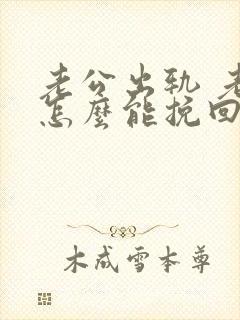 老公出轨 老
怎麼能挽回
木成雪本尊